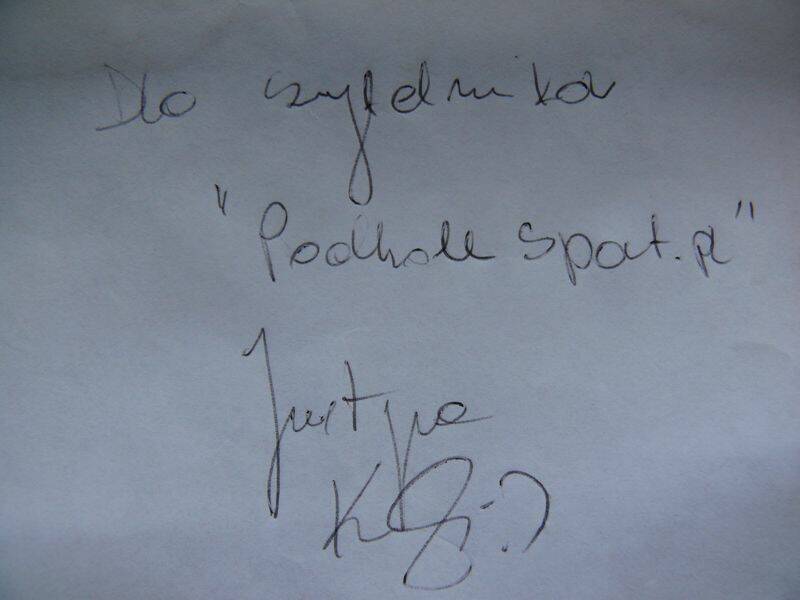 Dla czytelników
"Podhale Sport.pl"
Justyna
K :)